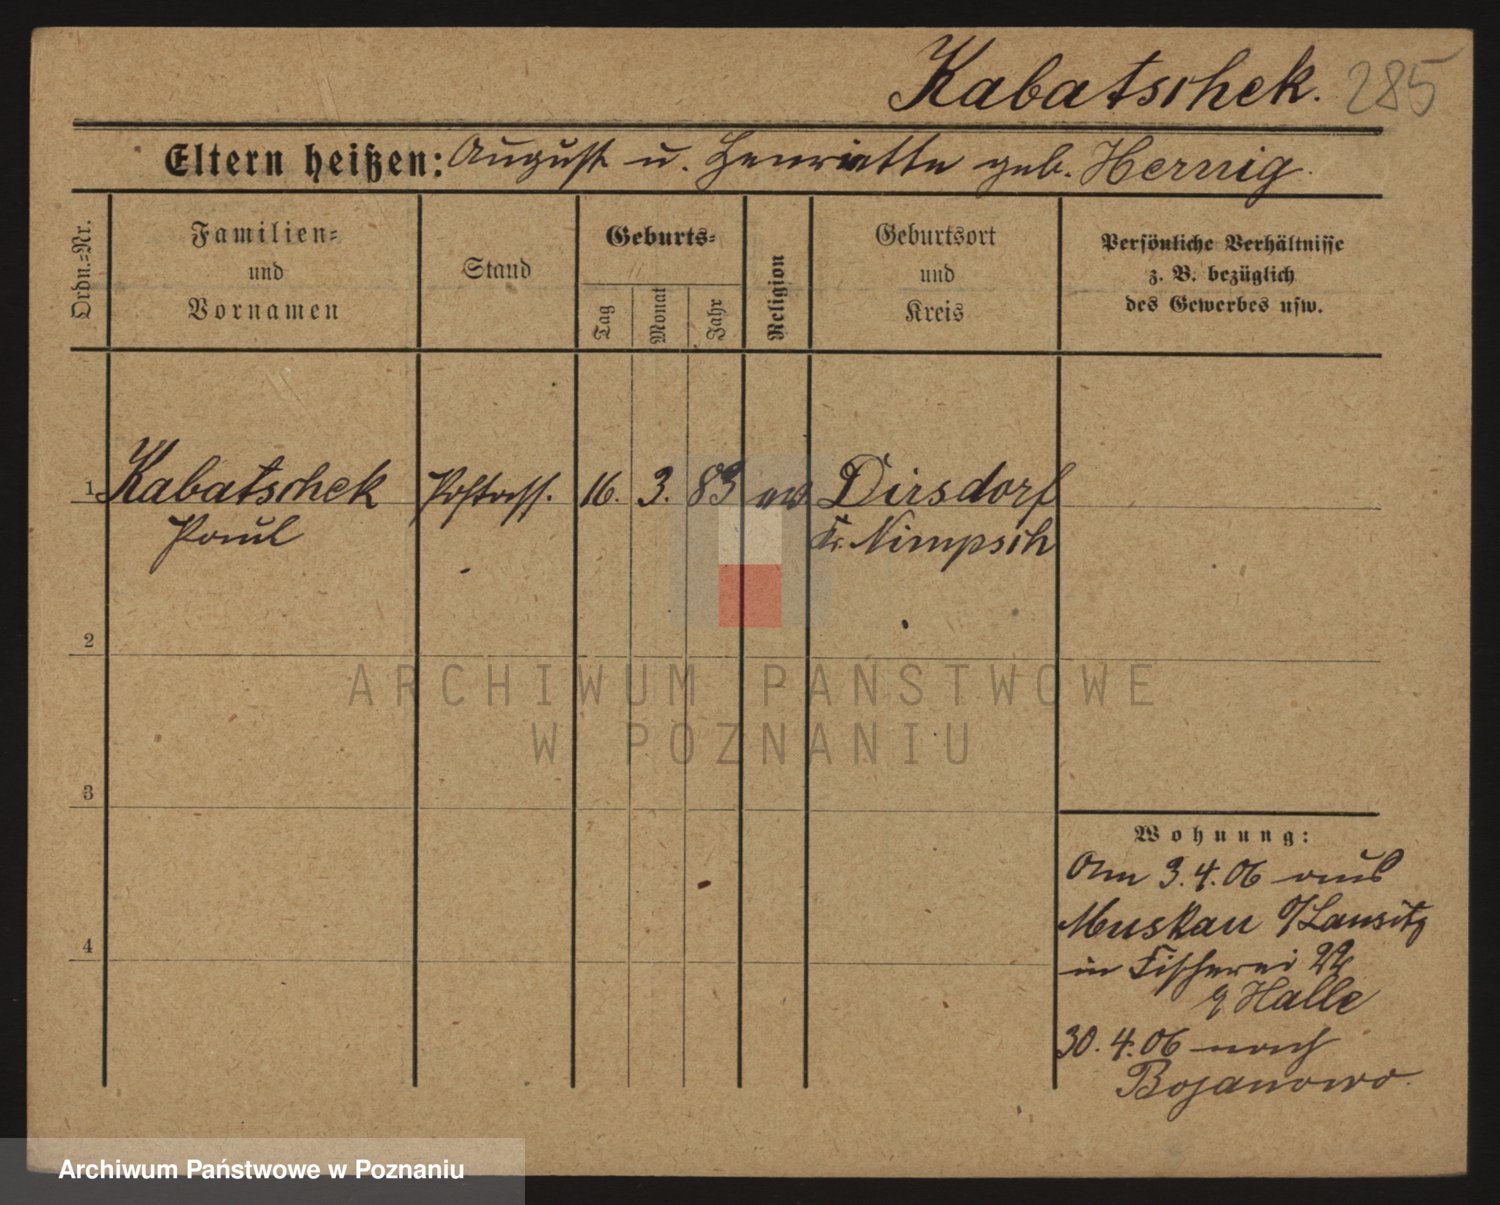 Kabatschek. 285
Eltern heißen: August u. Henriette geb. Hernig.
Ordn.=Nr.
Familien=
und
Vornamen
Stand
Geburts=
Tag
Monat
Jahr
Religion
Geburtsort
und
Kreis
Persönliche Verhältnisse
z. B. bezüglich
des Gewerbes usw.
1 Kabatschek Postass. 16. 3. 83 ev Dirsdorf
Paul Kr. Nimpsch
2
3
4
Wohnung:
Am 3.4.06 aus
Muskau O/Lausitz
in Fischerei 22
b/Halle
30.4.06 nach
Bojanowo.
ARCHIWUM PAŃSTWOWE
W POZNANIU
Archiwum Państwowe w Poznaniu